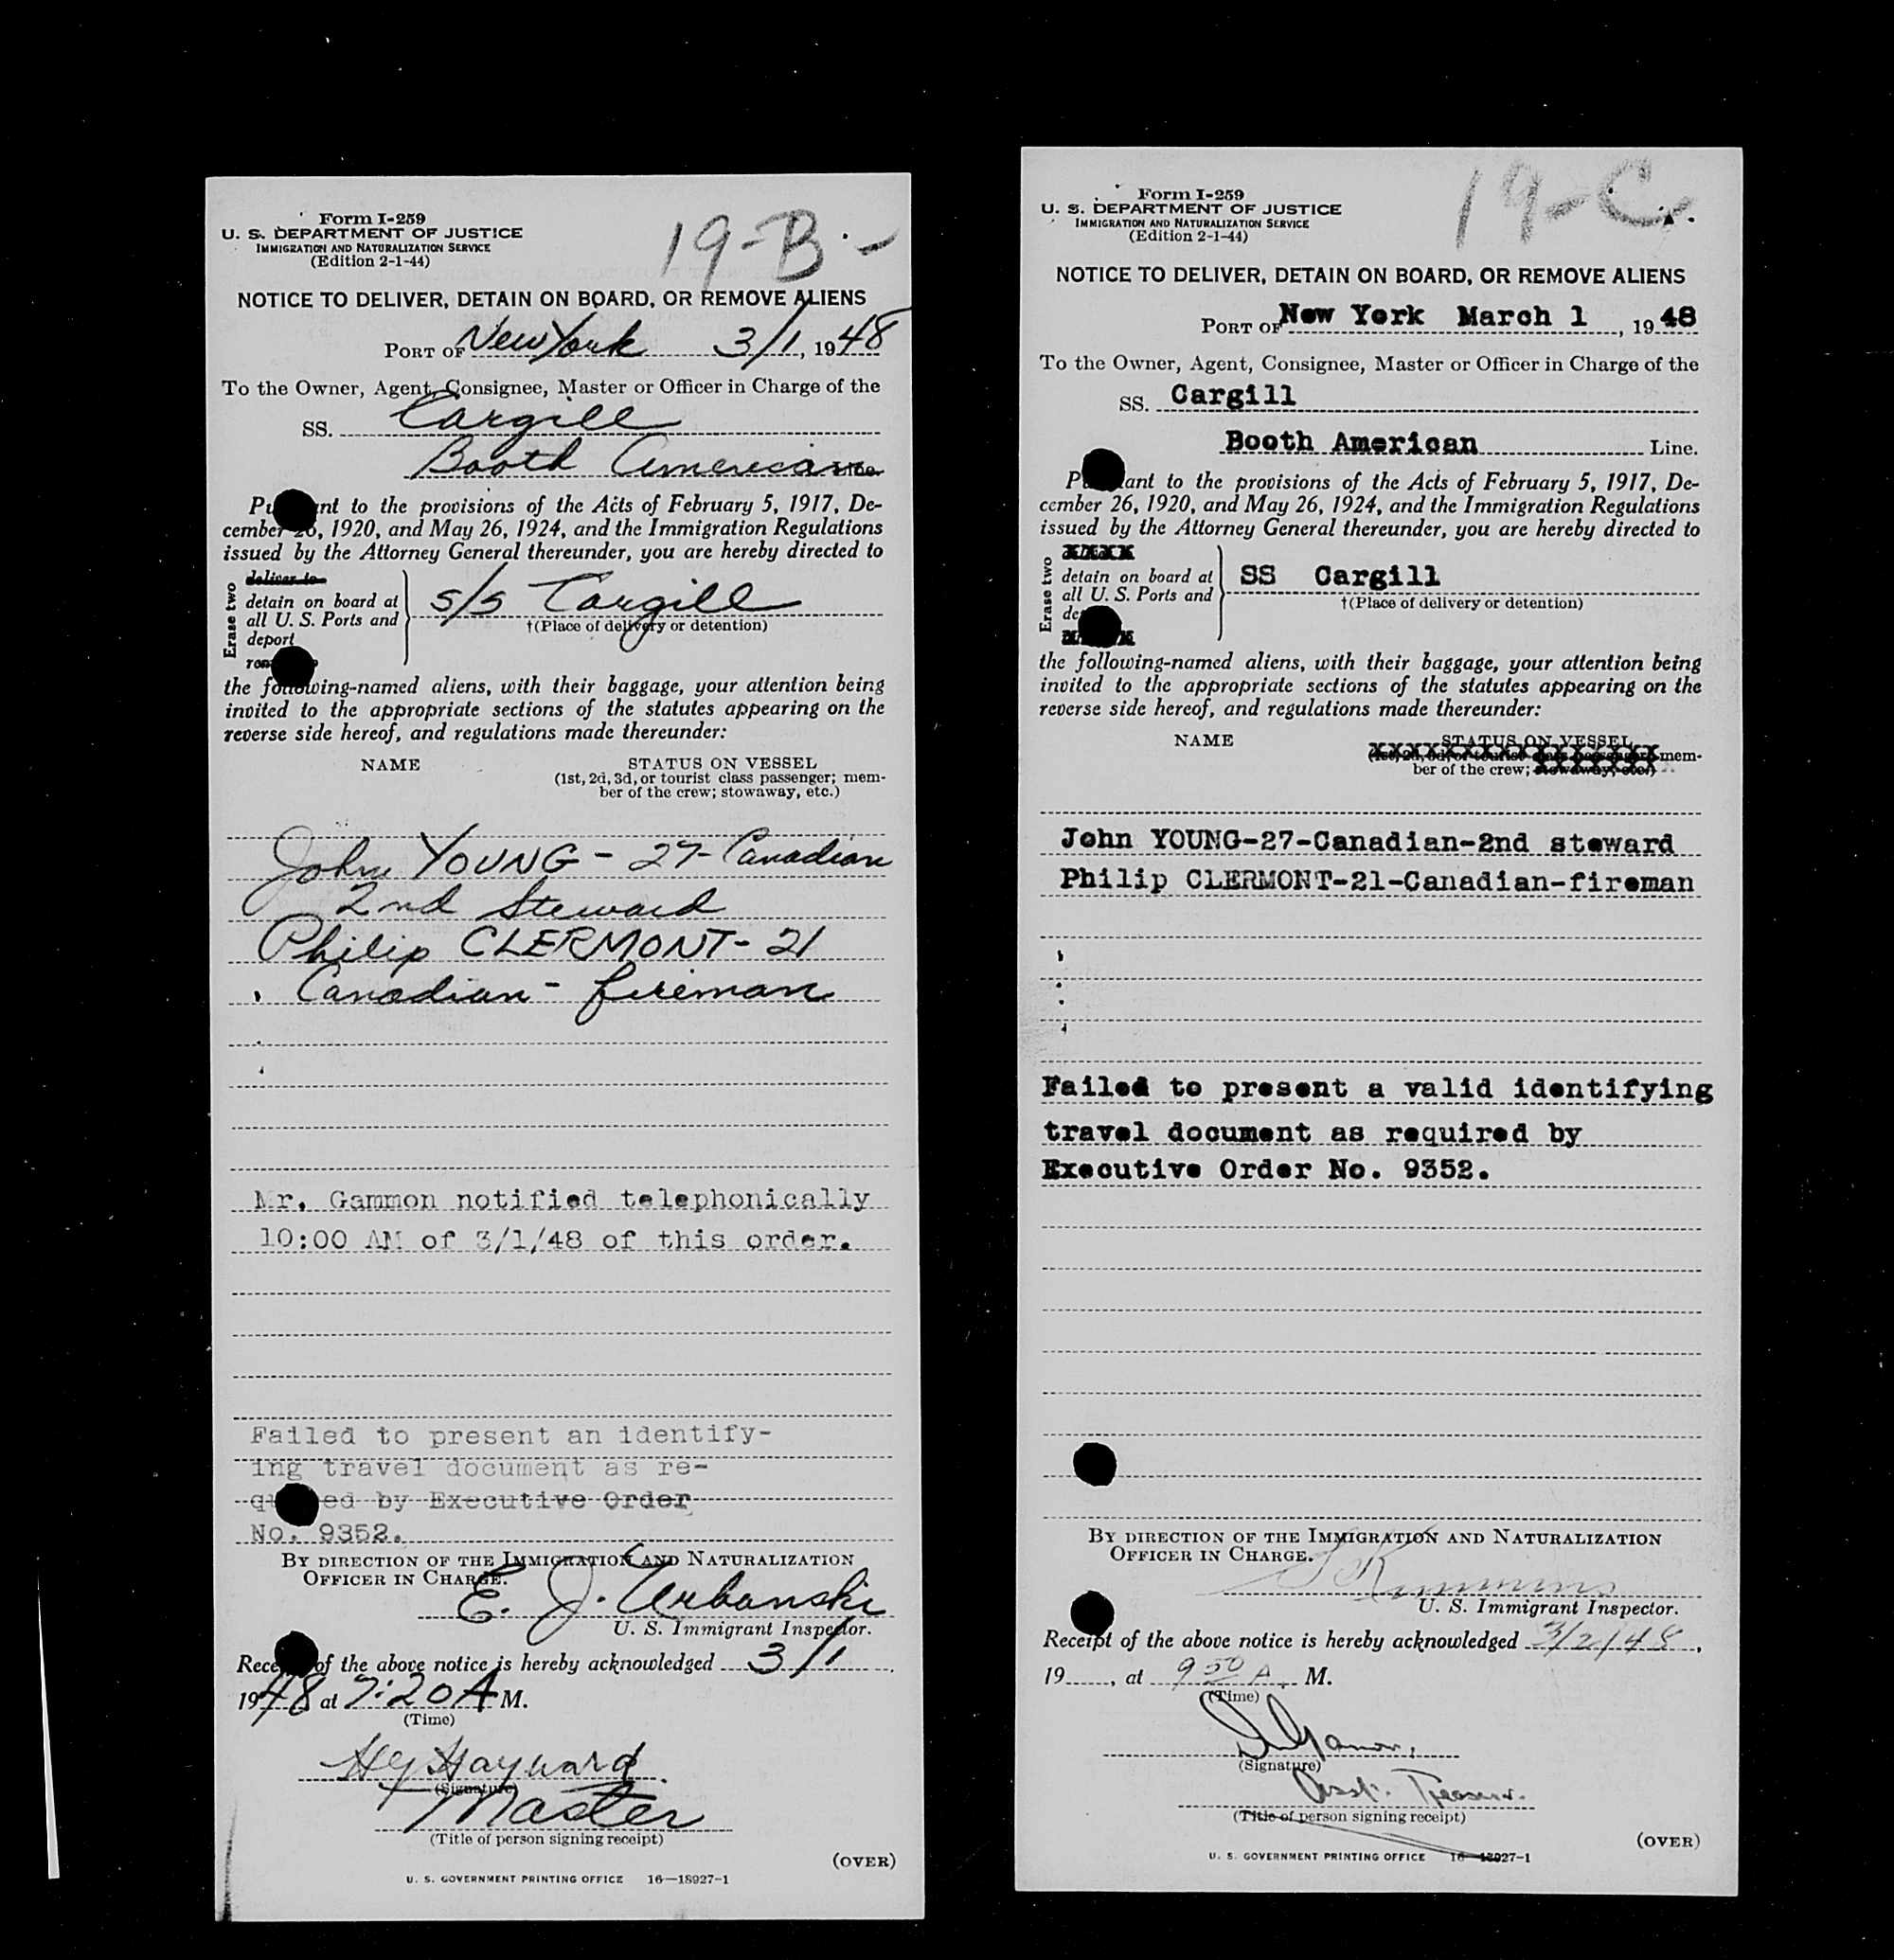 Form I-259
U. S. DEPARTMENT OF JUSTICE
IMMIGRATION AND NATURALIZATION SERVICE
(Edition 2-1-44)
19-B.-
NOTICE TO DELIVER, DETAIN ON BOARD, OR REMOVE ALIENS
PORT OF New York 3/1, 1948
To the Owner, Agent, Consignee, Master or Officer in Charge of the
SS. Cargill
Booth American Line.
nt to the provisions of the Acts of February 5, 1917, De-
cember 26, 1920, and May 26, 1924, and the Immigration Regulations
issued by the Attorney General thereunder, you are hereby directed to
Erase two
deliver to
detain on board at
all U. S. Ports and
deport
S/S Cargill
†(Place of delivery or detention)
the following-named aliens, with their baggage, your attention being
invited to the appropriate sections of the statutes appearing on the
reverse side hereof, and regulations made thereunder:
NAME STATUS ON VESSEL
(1st, 2d, 3d, or tourist class passenger; mem-
ber of the crew; stowaway, etc.)
John YOUNG - 27- Canadian
2nd Steward
Philip CLERMONT- 21
Canadian - fireman
Mr. Gammon notified telephonically
10:00 AM of 3/1/48 of this order.
Failed to present an identify-
ing travel document as re-
qu ed by Executive Order
No. 9352.
BY DIRECTION OF THE IMMIGRATION AND NATURALIZATION
OFFICER IN CHARGE.
E. J. Urbanski
U. S. Immigrant Inspector.
Rece of the above notice is hereby acknowledged 3/1
1948 at 7:20 A M.
(Time)
Hy Hayward
(Signature)
Master
(Title of person signing receipt)
(OVER)
U. S. GOVERNMENT PRINTING OFFICE 16—18927-1
Form I-259
U. S. DEPARTMENT OF JUSTICE
IMMIGRATION AND NATURALIZATION SERVICE
(Edition 2-1-44)
19-C.
NOTICE TO DELIVER, DETAIN ON BOARD, OR REMOVE ALIENS
PORT OF New York March 1, 1948
To the Owner, Agent, Consignee, Master or Officer in Charge of the
SS. Cargill
Booth American Line.
P ant to the provisions of the Acts of February 5, 1917, De-
cember 26, 1920, and May 26, 1924, and the Immigration Regulations
issued by the Attorney General thereunder, you are hereby directed to
Erase two
xxxx
detain on board at
all U. S. Ports and
de
SS Cargill
†(Place of delivery or detention)
the following-named aliens, with their baggage, your attention being
invited to the appropriate sections of the statutes appearing on the
reverse side hereof, and regulations made thereunder:
NAME STATUS ON VESSEL
(1st, 2d, 3d, or tourist class passenger; mem-
ber of the crew; stowaway, etc.)
John YOUNG-27-Canadian-2nd steward
Philip CLERMONT-21-Canadian-fireman
Failed to present a valid identifying
travel document as required by
Executive Order No. 9352.
BY DIRECTION OF THE IMMIGRATION AND NATURALIZATION
OFFICER IN CHARGE.
U. S. Immigrant Inspector.
Receipt of the above notice is hereby acknowledged 3/2/48,
19......, at 9 50 A. M.
(Time)
(Signature)
Asst. Treasur.
(Title of person signing receipt)
(OVER)
U. S. GOVERNMENT PRINTING OFFICE 16—18927-1